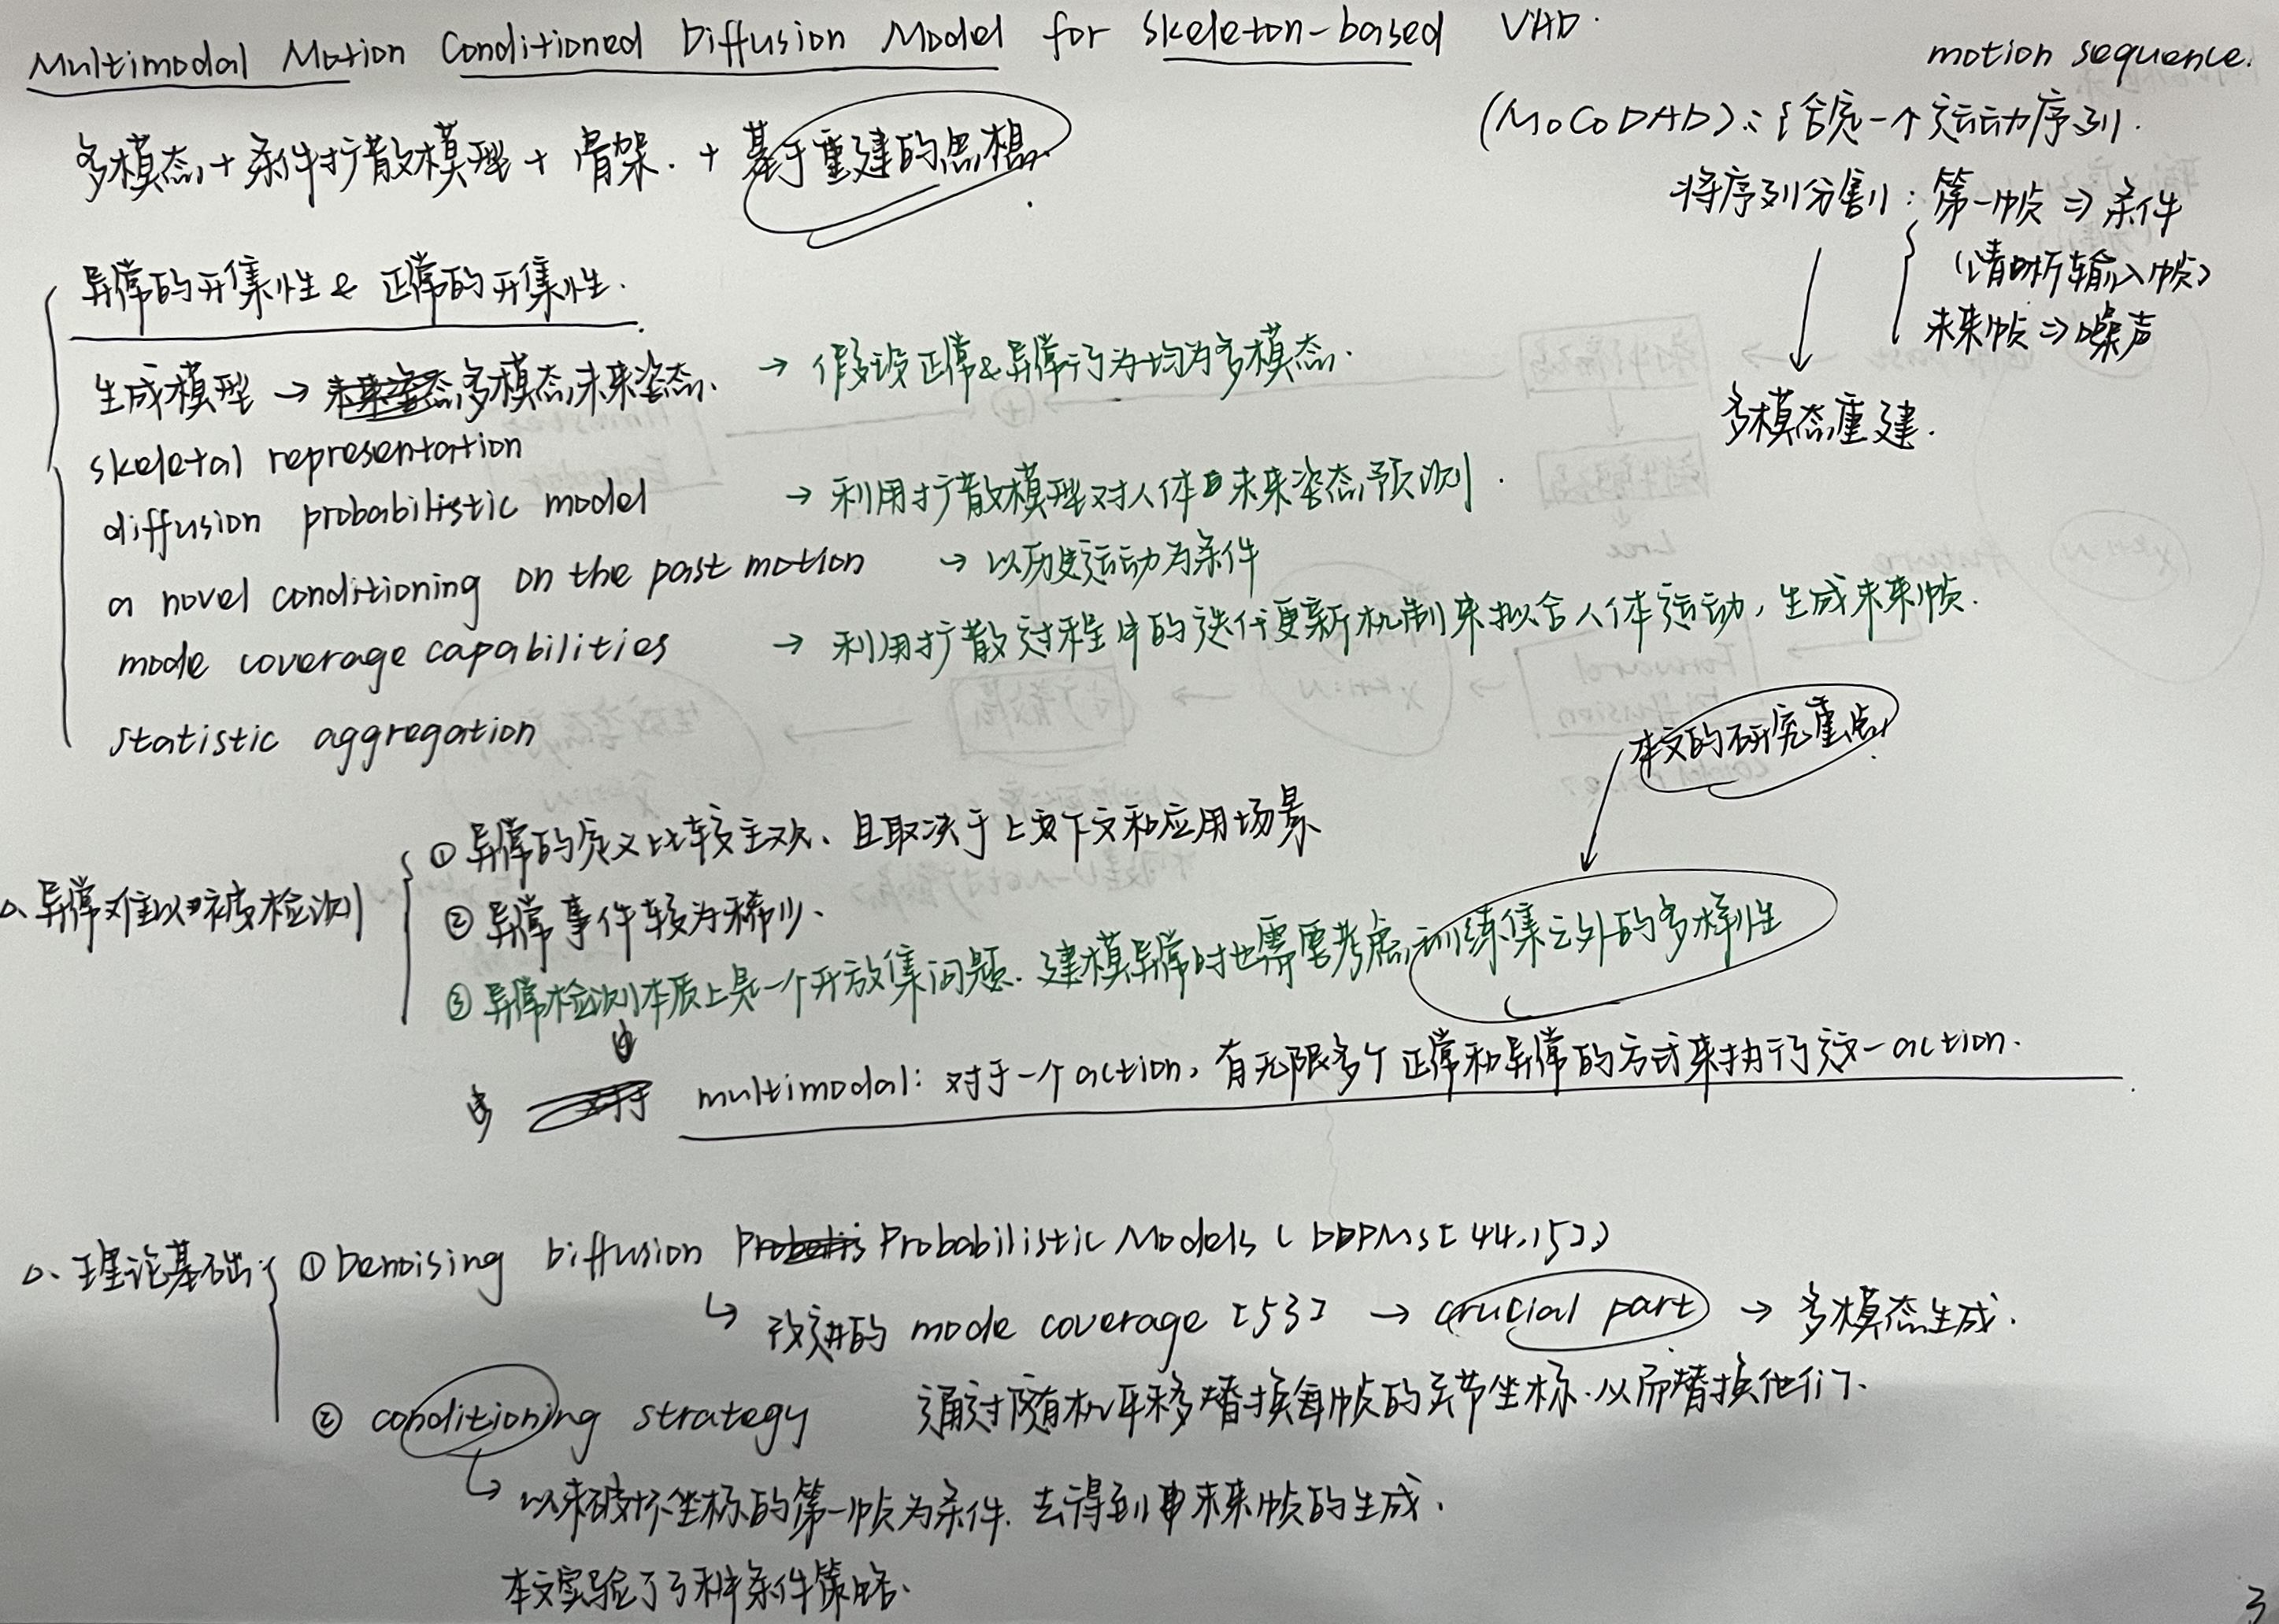 Multimodal Motion Conditioned Diffusion Model for skeleton-based VAD.
motion sequence.
多模态 + 条件扩散模型 + 骨架. + 基于重建的思想.
(MoCoDAD): 给定一个运动序列.
将序列分割: 第一帧 ⇒ 条件
(清晰输入帧)
未来帧 ⇒ 噪声
多模态重建.
异常的开集性 & 正常的开集性.
生成模型 → 多模态未来姿态. → 假设正常&异常行为均为多模态.
skeletal representation
diffusion probabilistic model → 利用扩散模型对人体未来姿态预测.
a novel conditioning on the past motion → 以历史运动为条件
mode coverage capabilities → 利用扩散过程中的迭代更新机制来拟合人体运动, 生成未来帧.
statistic aggregation
本文的研究重点
△、异常难以被检测
① 异常的定义比较主观、且取决于上下文和应用场景
② 异常事件较为稀少、
③ 异常检测本质上是一个开放集问题. 建模异常时也需要考虑训练集之外的多样性
multimodal: 对于一个action, 有无限多个正常和异常的方式来执行这一action.
△、理论基础
① Denoising Diffusion Probabilistic Models (DDPMs[44,15])
↳ 改进的 mode coverage [53] → crucial part → 多模态生成.
② conditioning strategy 通过随机平移替换每帧的关节坐标. 从而替换他们.
↳ 以未破坏坐标的第一帧为条件. 去得到未来帧的生成.
本文实验了3种条件策略.
3